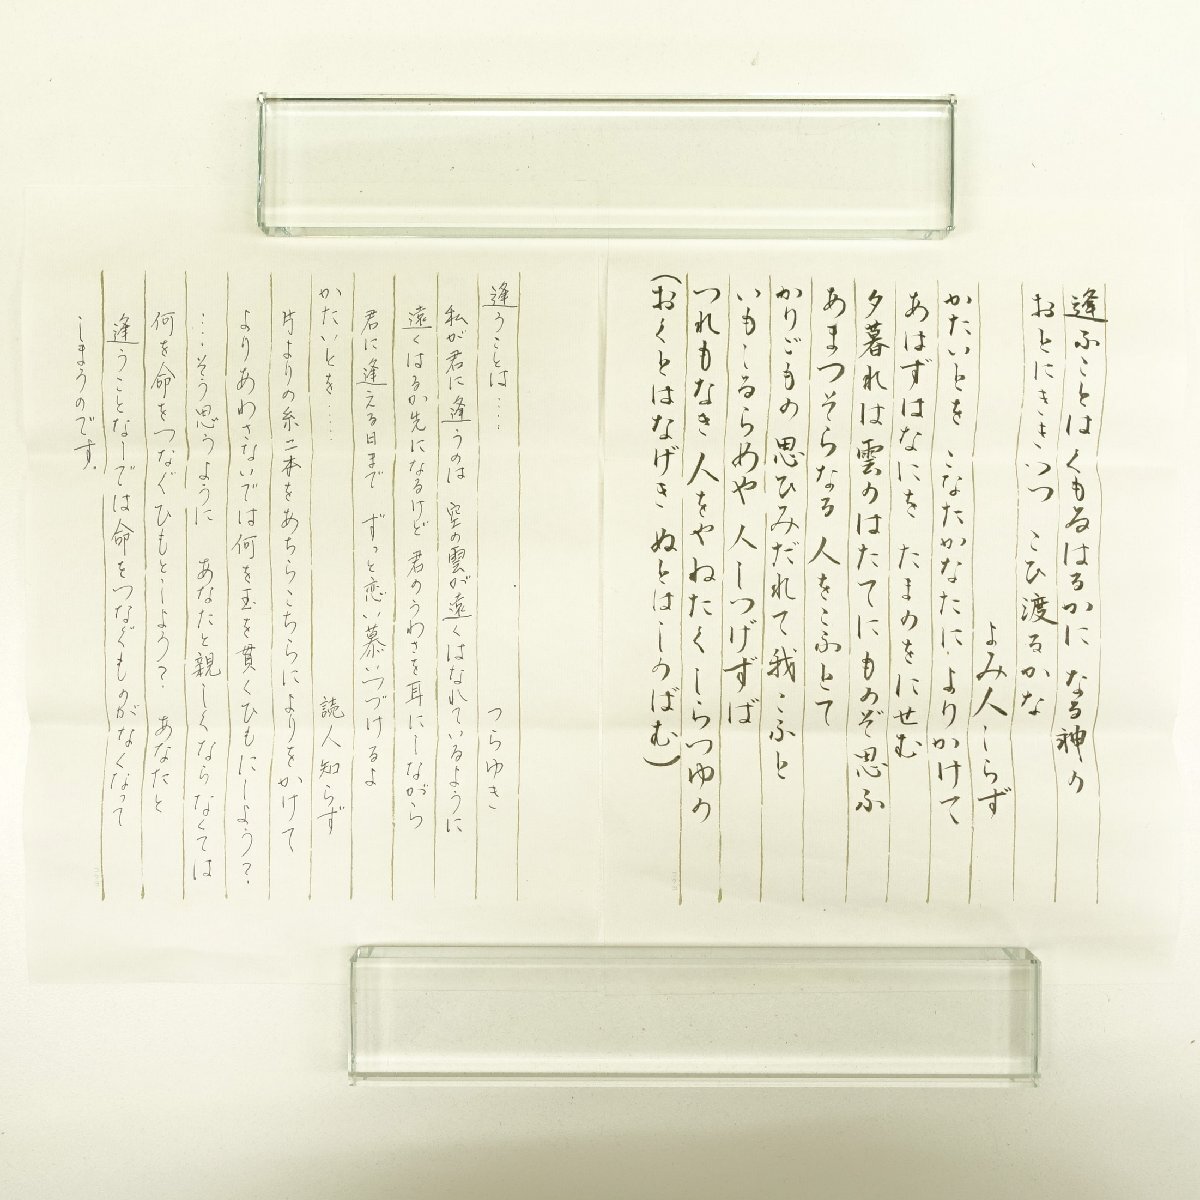 逢ふことはくもゐはるかになる神の
おとにきゝつゝこひ渡るかな
よみ人しらず
かたいとをこなたかなたによりかけて
あはずはなにをたまのをにせむ
夕暮れは雲のはたてにものぞ思ふ
あまつそらなる人をこふとて
かりごもの思ひみだれて我こふと
いもしるらめや人しつげずば
つれもなき人をやねたくしらつゆの
(おくとはなげきぬとはしのばむ)
逢うことは…
つらゆき
私が君に逢うのは空の雲が遠くはなれているように
遠くはるか先になるけど君のうわさを耳にしながら
君に逢える日までずっと恋い慕いつづけるよ
かたいとを……
読人知らず
片よりの糸二本をあちらこちらによりをかけて
よりあわさないでは何を玉を貫くひもにしよう?
…そう思うようにあなたと親しくならなくては
何を命をつなぐひもとしよう?あなたと
逢うことなしでは命をつなぐものがなくなって
しまうのです。